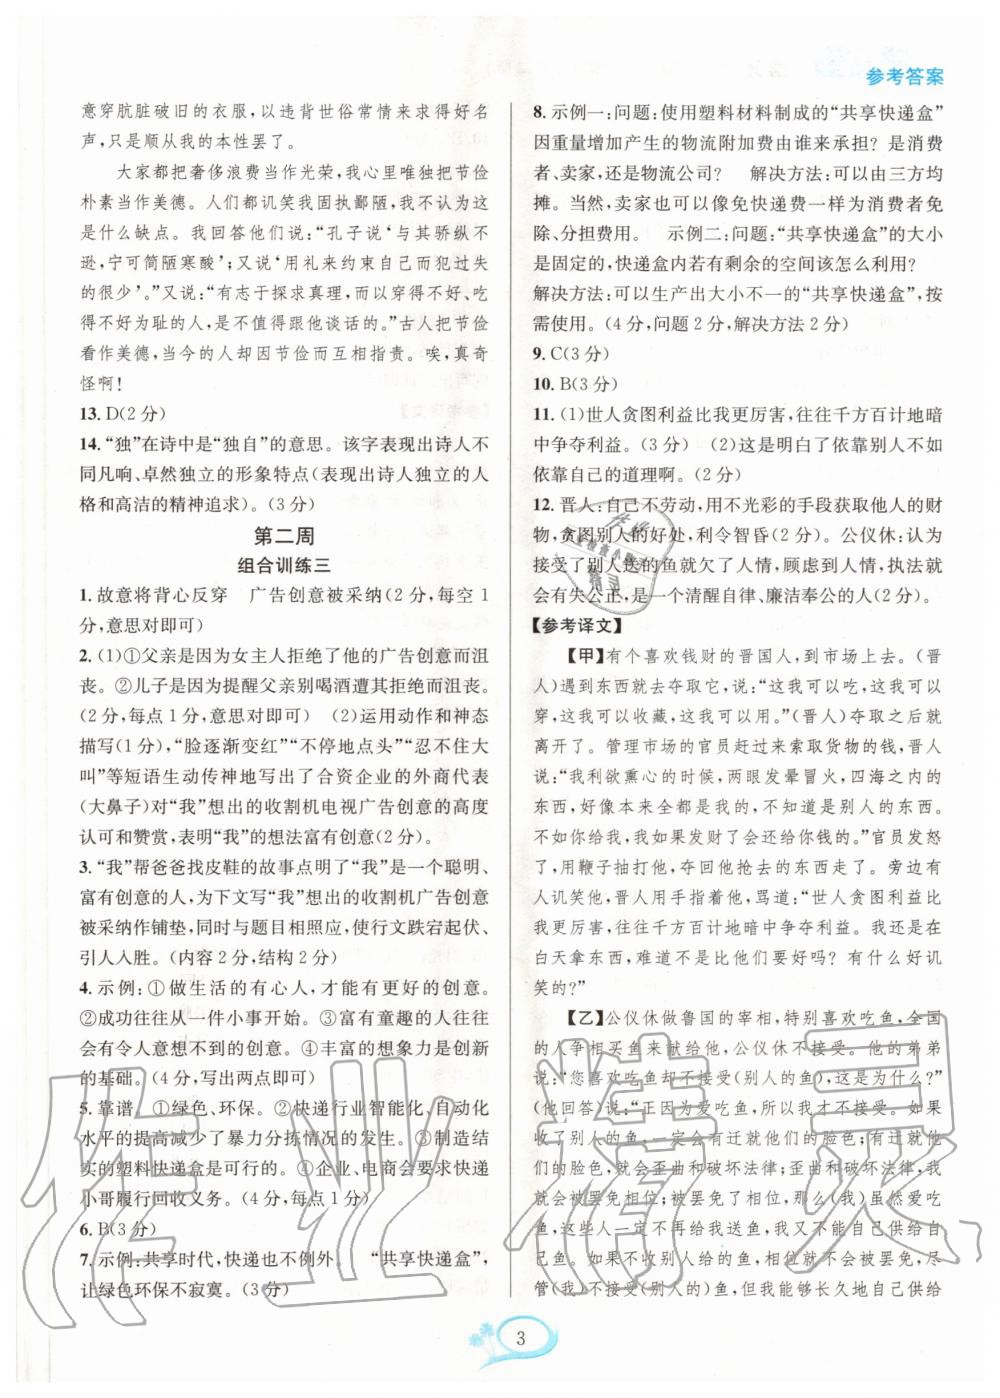 参考答案
意穿肮脏破旧的衣服，以违背世俗常情来获得好名
声，只是顺从我的本性罢了。
大家都把奢侈浪费当作光荣，我心里唯独把节俭
朴素当作美德。人们都讥笑我固执鄙陋，我不认为这
是什么缺点。我回答他们说：“孔子说‘与其骄纵不
逊，宁可简陋寒酸’；又说‘用礼来约束自己而犯过失
的很少’。”又说：“有志于探求真理，而以穿得不好、吃
得不好为耻的人，是不值得跟他谈话的。”古人把节俭
看作美德，当今的人却因节俭而互相指责。唉，真奇
怪啊！
13. D(2分)
14. “独”在诗中是“独自”的意思。该字表现出诗人不
同凡响、卓然独立的形象特点(表现出诗人独立的人
格和高洁的精神追求)。(3分)
第二周
组合训练三
1. 故意将背心反穿　广告创意被采纳(2分，每空1
分，意思对即可)
2. (1)①父亲是因为女主人拒绝了他的广告创意而沮
丧。②儿子是为提醒父亲别喝酒遭其拒绝而沮丧。
(2分，每点1分，意思对即可)　(2)运用动作和神态
描写(1分)，“脸逐渐变红”“不停地点头”“忍不住大
叫”等短语生动传神地写出了合资企业的外商代表
(大鼻子)对“我”想出的收割机电视广告创意的高度
认可和赞赏，表明“我”的想法富有创意(2分)。
3. “我”帮爸爸找皮鞋的故事点明了“我”是一个聪明、
富有创意的人，为下文写“我”想出的收割机广告创意
被采纳作铺垫，同时与题目相照应，使行文跌宕起伏、
引人入胜。(内容2分，结构2分)
4. 示例：①做生活的有心人，才能有更好的创意。
②成功往往从一件小事开始。③富有童趣的人往往
会有令人意想不到的创意。④丰富的想象力是创新
的基础。(4分，写出两点即可)
5. 靠谱。①绿色、环保。②快递行业智能化、自动化
水平的提高减少了暴力分拣情况的发生。③制造结
实的塑料快递盒是可行的。④企业、电商会要求快递
小哥履行回收义务。(4分，每点1分)
6. B(3分)
7. 示例：共享时代，快递也不例外。　“共享快递盒”，
让绿色环保不寂寞。(3分)
8. 示例一：问题：使用塑料材料制成的“共享快递盒”
因重量增加产生的物流附加费由谁来承担？是消费
者、卖家，还是物流公司？　解决方法：可以由三方均
摊。当然，卖家也可以像免快递费一样为消费者免
除、分担费用。　示例二：问题：“共享快递盒”的大小
是固定的，快递盒内若有剩余的空间该怎么利用？
解决方法：可以生产出大小不一的“共享快递盒”，按
需使用。(4分，问题2分，解决方法2分)
9. C(3分)
10. B(3分)
11. (1)世人贪图利益比我更厉害，往往千方百计地暗
中争夺利益。(3分)　(2)这是明白了依靠别人不如
依靠自己的道理啊。(2分)
12. 晋人：自己不劳动，用不光彩的手段获取他人的财
物，贪图别人的好处，利令智昏(2分)。公仪休：认为
接受了别人送的鱼就欠了人情，迁就于人情，执法就
会有失公正，是一个清醒自律、廉洁奉公的人(2分)。
【参考译文】
【甲】有个喜欢钱财的晋国人，到市场上去。(晋
人)遇到东西就去夺取它，说：“这我可以吃，这我可以
穿，这我可以收藏，这我可以用。”(晋人)夺取之后就
离开了。管理市场的官员赶过来索取货物的钱，晋人
说：“我利欲熏心的时候，两眼发晕冒火，四海之内的
东西，好像本来全都是我的，不知道是别人的东西。
不如你给我，我如果发财了会还给你钱的。”官员发怒
了，用鞭子抽打他，夺回他抢去的东西走了。旁边
有人讥笑他，晋人用手指着他，骂道：“世人贪图利益比
我更厉害，往往千方百计地暗中争夺利益。我还是在
白天拿东西，难道不是与我相比要好吗？有什么好讥
笑的？”
【乙】公仪休做鲁国的宰相，特别喜欢吃鱼，全国
的人争相买鱼来献给他，公仪休不接受。他的弟弟
说：“您喜欢吃鱼却不接受(别人的鱼)，这是为什么？”
(他回答)说：“正因为爱吃鱼，所以我才不接受。如果
收了别人的鱼，一定会有迁就他们的脸色；有迁就他
们的脸色，就会歪曲和破坏法律；歪曲和破坏法律，我
就会被罢免相位；被罢免了相位，那么(我)虽然爱吃
鱼，这些人一定不再给我送鱼，我又不能自己供给自
己鱼。如果不收别人给的鱼，相位就不会被罢免，尽
管(我)不接受(别人的鱼)，但能够长久地自己供给
3